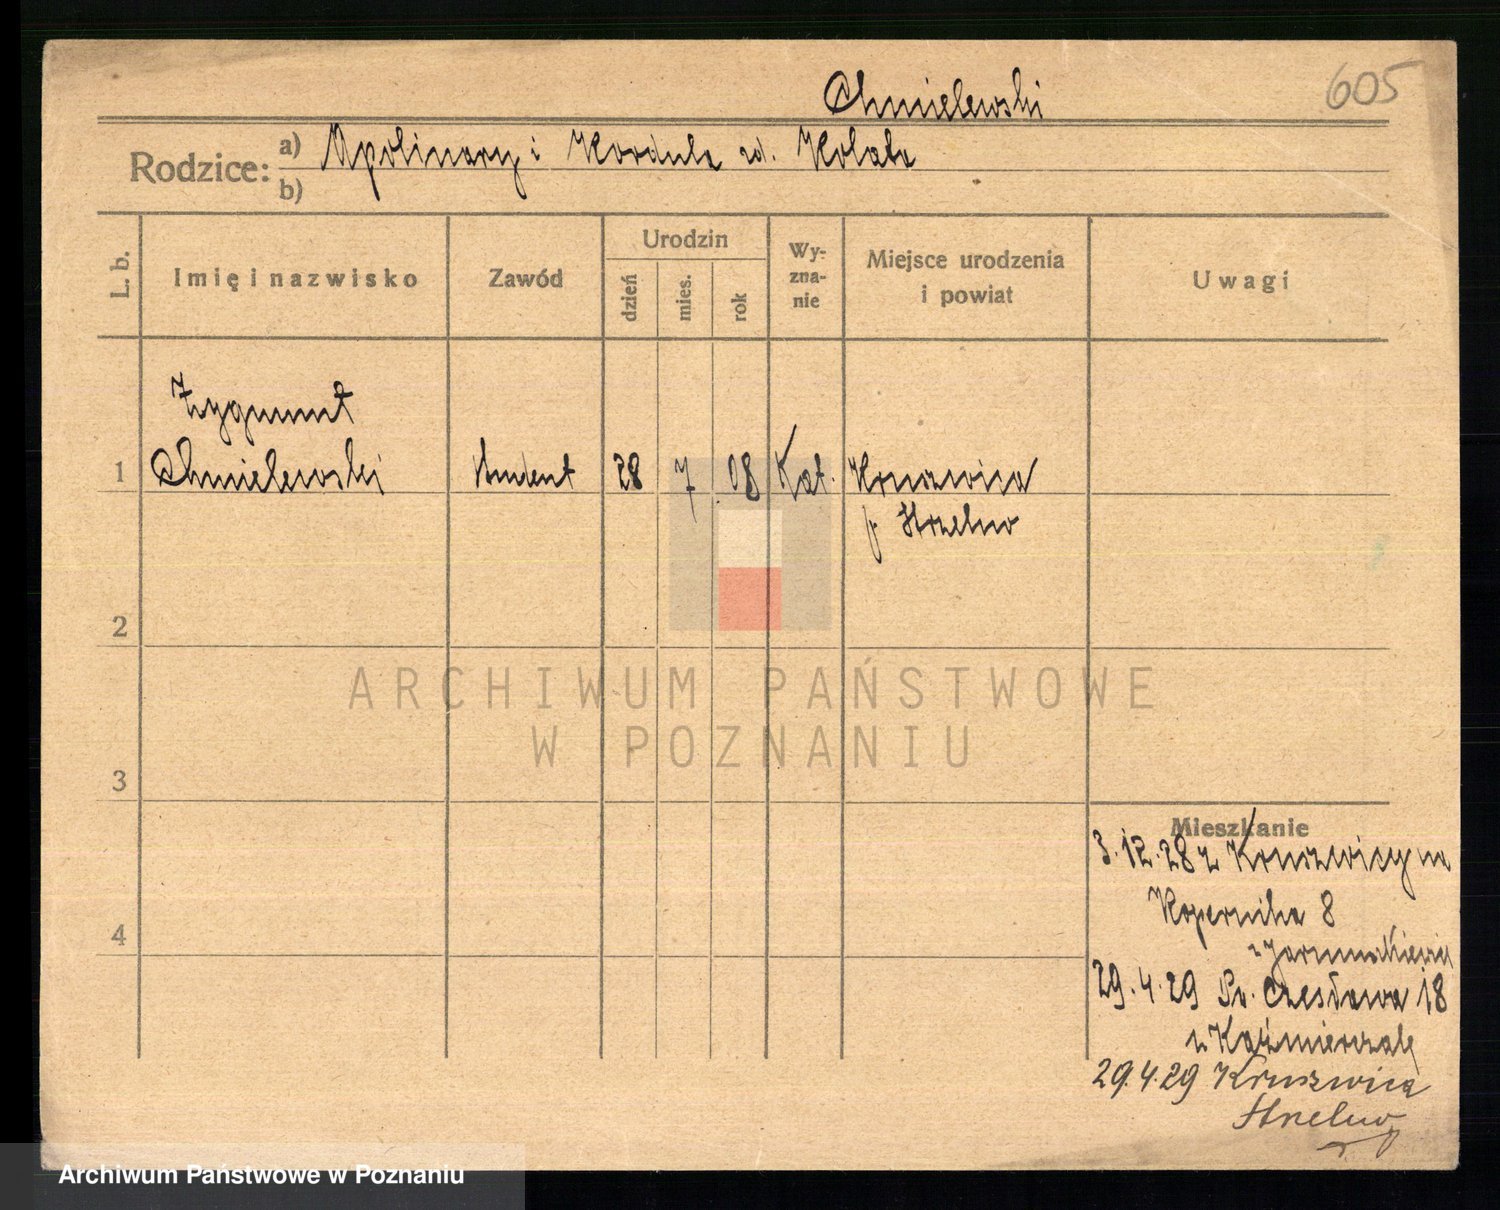 Chmielewski
605
Rodzice:
a) Apolinary i Kordula zd. Kolata
b)
L. b.
Imię i nazwisko
Zawód
Urodzin
dzień
mies.
rok
Wy-
zna-
nie
Miejsce urodzenia
i powiat
Uwagi
Zygmunt
1 Chmielewski student 28 7 08 Kat. Kruszwica
p. Strzelno
2
ARCHIWUM PAŃSTWOWE
W POZNANIU
3
Mieszkanie
3.12.28 z Kruszwicy na
Kopernika 8
4
29.4.29 Św. Czesława 18
u Kaźmierczak
29.4.29 Kruszwica
Strzelno
Archiwum Państwowe w Poznaniu